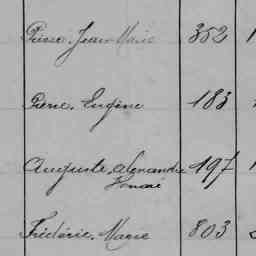 Pierre Jean Marie 352
Pierre Eugène 183
Auguste Alexandre 197
Honoré
Frédéric Marie 803